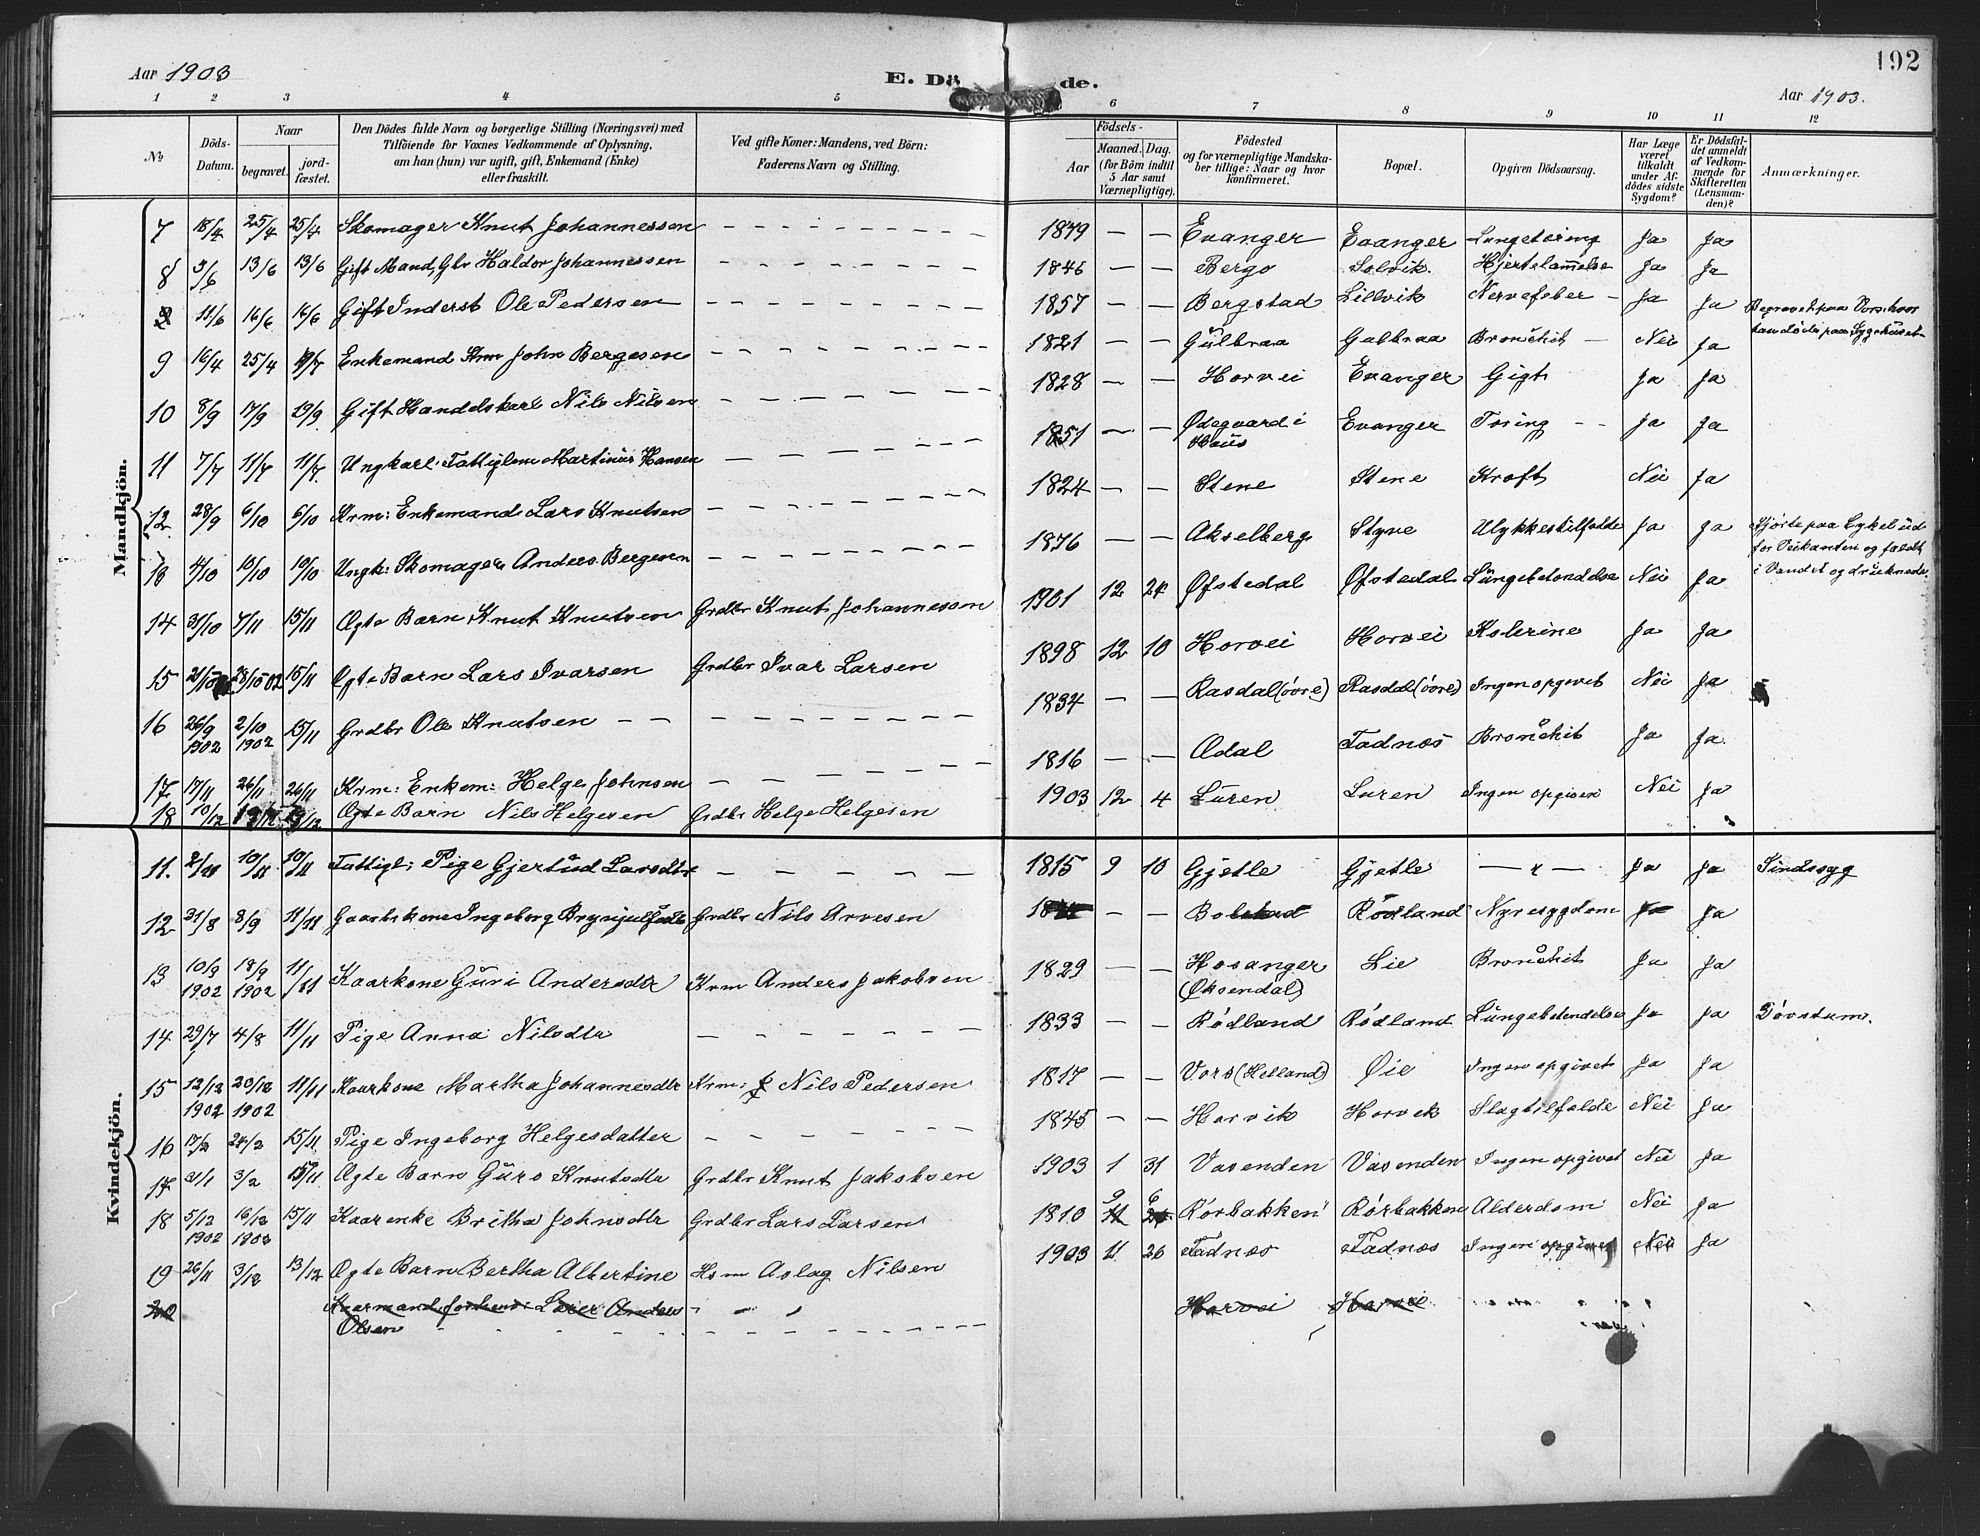 192
Aar 1903 E. Dö de. Aar 1903.
1 2 3 4 5 6 7 8 9 10 11 12
No
Döds-Datum.
Naar
begravet.
jord-fæstet.
Den Dödes fulde Navn og borgerlige Stilling (Næringsvei) med
Tilföiende for Voxnes Vedkommende af Oplysning,
om han (hun) var ugift, gift, Enkemand (Enke)
eller fraskilt.
Ved gifte Koner: Mandens, ved Börn:
Faderens Navn og Stilling.
Födsels-
Aar
Maaned. Dag.
(for Börn indtil
5 Aar samt
Værnepligtige).
Födested
og for værnepligtige Mandska-
ber tillige: Naar og hvor
konfirmeret.
Bopæl.
Opgiven Dödsaarsag.
Har Læge
været
tilkaldt
under Af-
dödes sidste
Sygdom?
Er Dödsfal-
det anmeldt
af Vedkom-
mende for
Skifteretten
(Lensman-
den)?
Anmærkninger.
Mandkjön.
7 18/4 25/4 25/4 Skomager Knut Johannessen 1849 Evanger Evanger Lungetæring Ja Ja
8 3/6 13/6 13/6 Gift Mand, Gbr Haldor Johannessen 1846 Bergo Solvik. Hjertelammelse Ja Ja
11/6 16/6 16/6 Gift Inderst Ole Pedersen 1857 Bergstad Lillvik Nervefeber Ja Ja Begravet paa Vors, hvor
han døde paa Sygehuset
9 16/4 25/4 Enkemand Krm John Bergesen 1821 Gulbraa Gulbraa Bronchit Nei Ja
10 8/9 17/9 19/9 Gift Handelskarl Nils Nilsen 1828 Horvei Evanger Gigt Ja Ja
11 7/7 11/7 11/7. Ungkarl: Fattiglem Martinus Hansen 1851 Ødegaard i Haus Evanger Tæring Ja Ja
12 28/9 6/10 6/10 Krm: Enkemand: Lars Knutsen 1824 Stene Stene Kræft Nei Ja
13 4/10 10/10 10/10 Ungk: Skomager Anders Bergesen 1876 Akselberg Styve Ulykkestilfælde Ja Ja Kjørte paa Cykel ud-
for Veikanten og faldt
i Vandet og druknede.
14 31/10 7/11 15/11 Ægte Barn Knut Knutsen Grdbr Knut Johannessen 1901 12 24 Øfstedal Øfstedal Lungebetændelse Nei Ja
15 15/11 Ægte Barn Lars Ivarsen Grdbr Ivar Larsen 1898 12 10 Horvei Horvei Kolerine Ja Ja
16 26/9 1902 2/10 1902 15/11 Grdbr Ole Knutsen 1834 Rasdal (övre) Rasdal (övre) Ingen opgivet Nei Ja
17 17/11 26/11 26/11 Krm: Enkem: Helge Johnsen 1816 Ædal Fadnæs Bronchit Ja Ja.
18 10/12 Ægte Barn Nils Helgesen Grdbr Helge Helgesen 1903 12 4 Luren Luren Ingen opgiven Nei Ja
Kvindekjön.
11. 2/11 10/11 10/11 Fattigl: Pige Gjertrud Larsdtr 1815 9 10 Gjetle Gjetle Ja Ja Sindssyg
12 31/8 8/9 11/11 Gaardskone Ingeborg Brynjulfsdtr Grdbr Nils Arvesen Bolstad Rödland Nyresygdom Ja Ja
13 10/9 1902 18/9 1902 11/11 Kaarkone Guri Andersdtr Krm Anders Jakobsen 1829 Hosanger (Øksendal) Lie Bronchit Ja Ja
14 29/7 4/8 11/11 Pige Anna Nilsdtr 1833 Rødland Rødland Lungebetændelse Ja Ja Døvstum.
15 12/12 1902 20/12 1902 11/11 Kaarkone Martha Johannesdtr Krm: Nils Pedersen 1817 Vors (Helland) Øie Ingen opgivet Ja Ja
16 17/2 24/2 15/11 Pige Ingeborg Helgesdatter 1845 Horvik Horvik Slagtilfælde Nei Ja
17 31/1 3/2 15/11 Ægte Barn Guro Knutsdtr Grdbr Knut Jakobsen 1903 1 31 Vasenden Vasenden Ingen opgivet Nei Ja
18 5/12 1902 16/12 1902 15/11 Kaarenke Britha Johnsdtr Grdbr Lars Larsen 1810 9 6 Rörbakken Rörbakken Alderdom Nei Ja
19 26/11 3/12 13/12 Ægte Barn Bertha Albertine Hsm Aslag Nilsen 1903 11 26 Fadnæs Fadnæs Ingen opgivet Nei Ja
20 Kaarmand, forhenv: Lærer Anders Olsen Horvei Horvei